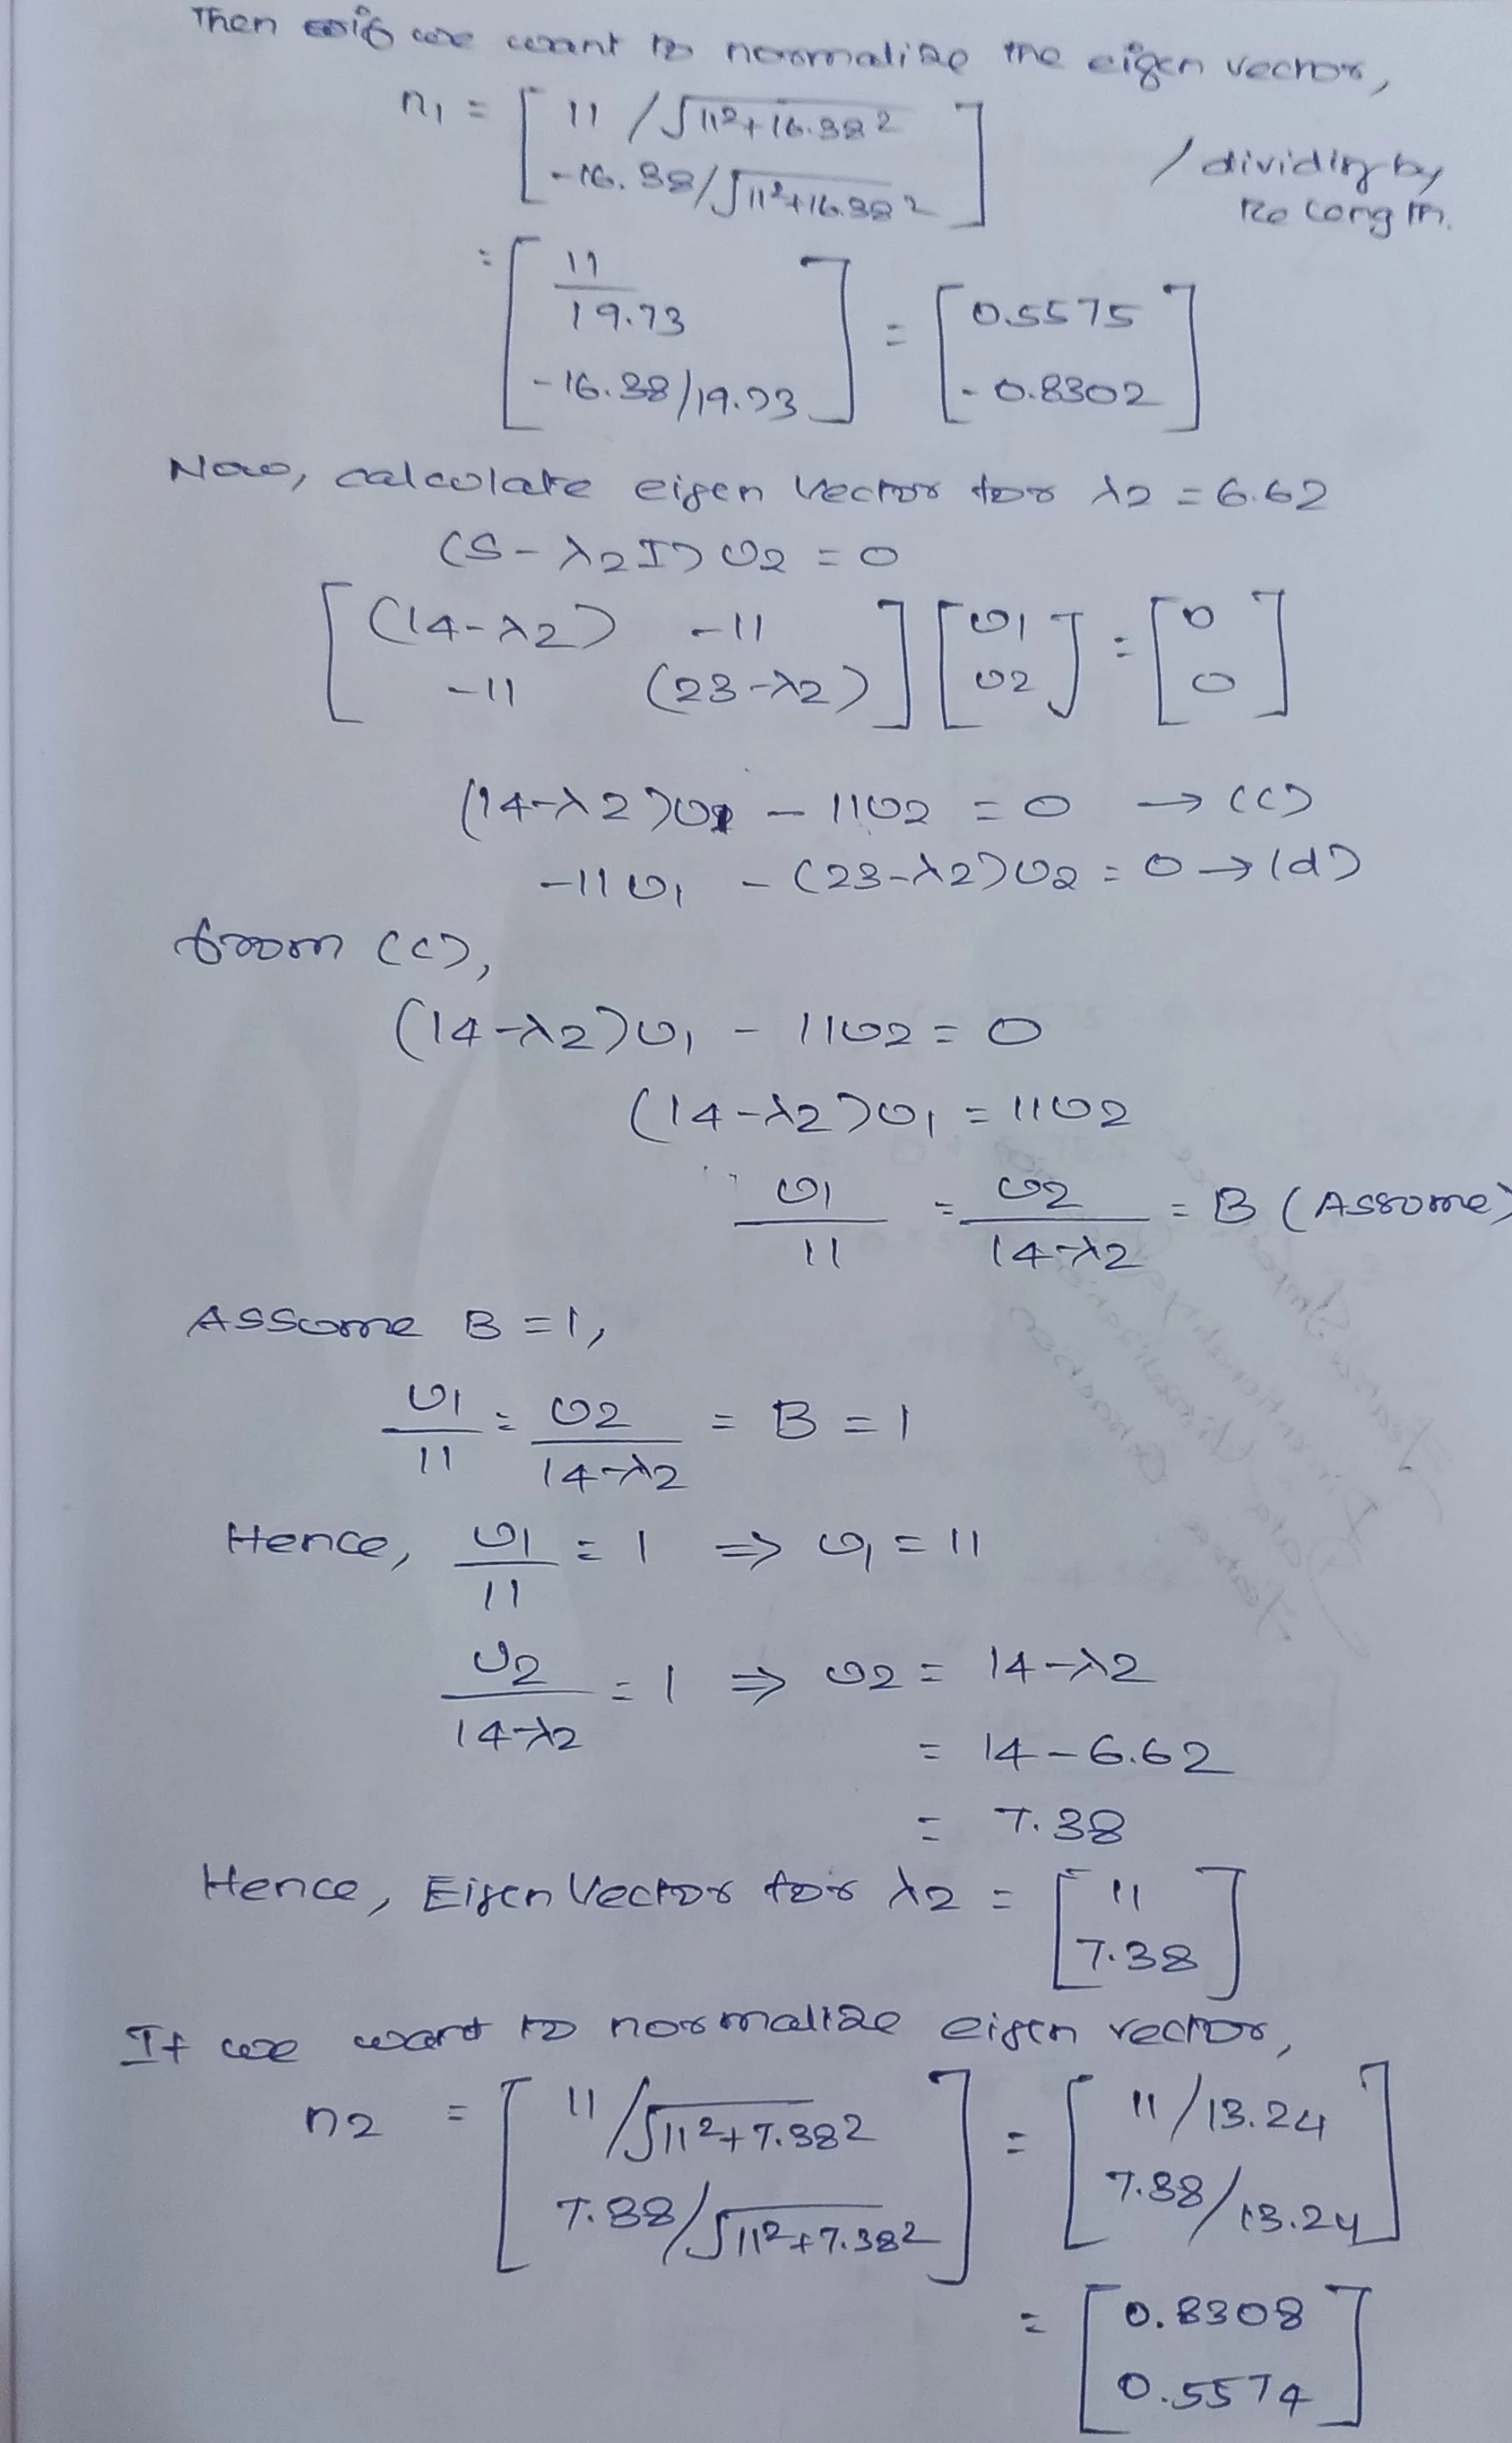 Then if we want to normalize the eigen vector,
n1 = [ 11 / √11²+16.38²
-16.38/√11²+16.38² ] / dividing by
its length.
= [ 11/19.73
-16.38/19.73 ] = [ 0.5575
-0.8302 ]
Now, calculate eigen vector for λ2 = 6.62
(S - λ2I) U2 = 0
[ (14-λ2) -11
-11 (23-λ2) ] [ U1
U2 ] = [ 0
0 ]
(14-λ2)U1 - 11U2 = 0 → (c)
-11U1 - (23-λ2)U2 = 0 → (d)
from (c),
(14-λ2)U1 - 11U2 = 0
(14-λ2)U1 = 11U2
U1/11 = U2/14-λ2 = B (Assume)
Assume B = 1,
U1/11 = U2/14-λ2 = B = 1
Hence, U1/11 = 1 ⇒ U1 = 11
U2/14-λ2 = 1 ⇒ U2 = 14-λ2
= 14-6.62
= 7.38
Hence, Eigen Vector for λ2 = [ 11
7.38 ]
If we want to normalize eigen vector,
n2 = [ 11/√11²+7.38²
7.38/√11²+7.38² ] = [ 11/13.24
7.38/13.24 ]
= [ 0.8308
0.5574 ]